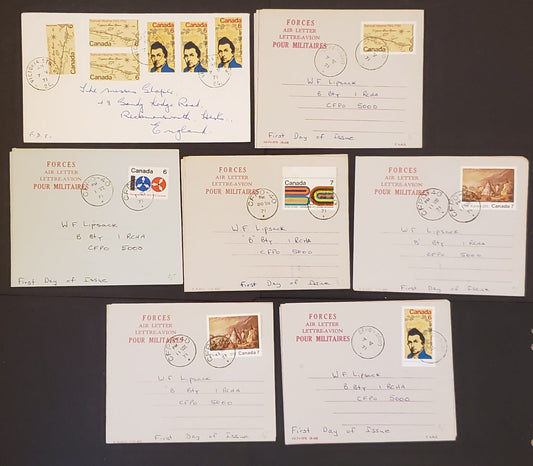 Canada
Canada 6
Canada 6
Canada 6
The Misses Staples
48 Sandy Lodge Road,
Rickmansworth Herts.
England.
F.D.C.
FORCES
AIR LETTER
LETTRE-AVION
POUR MILITAIRES
W.F. Lipsack
B Bty 1 RCHA
CFPO 5000
First Day of Issue
FORCES
AIR LETTER
LETTRE-AVION
POUR MILITAIRES
Canada 6
W.F. Lipsack
B Bty 1 RCHA
CFPO 5000
First Day of Issue
FORCES
AIR LETTER
LETTRE-AVION
POUR MILITAIRES
Canada 7
W.F. Lipsack
B Bty 1 RCHA
CFPO 5000
First Day of Issue
FORCES
AIR LETTER
LETTRE-AVION
POUR MILITAIRES
W.F. Lipsack
B Bty 1 RCHA
CFPO 5000
First Day of Issue
FORCES
AIR LETTER
LETTRE-AVION
POUR MILITAIRES
W.F. Lipsack
B Bty 1 RCHA
CFPO 5000
First Day of Issue
FORCES
AIR LETTER
LETTRE-AVION
POUR MILITAIRES
Canada
W.F. Lipsack
B Bty 1 RCHA
CFPO 5000
First Day of Issue